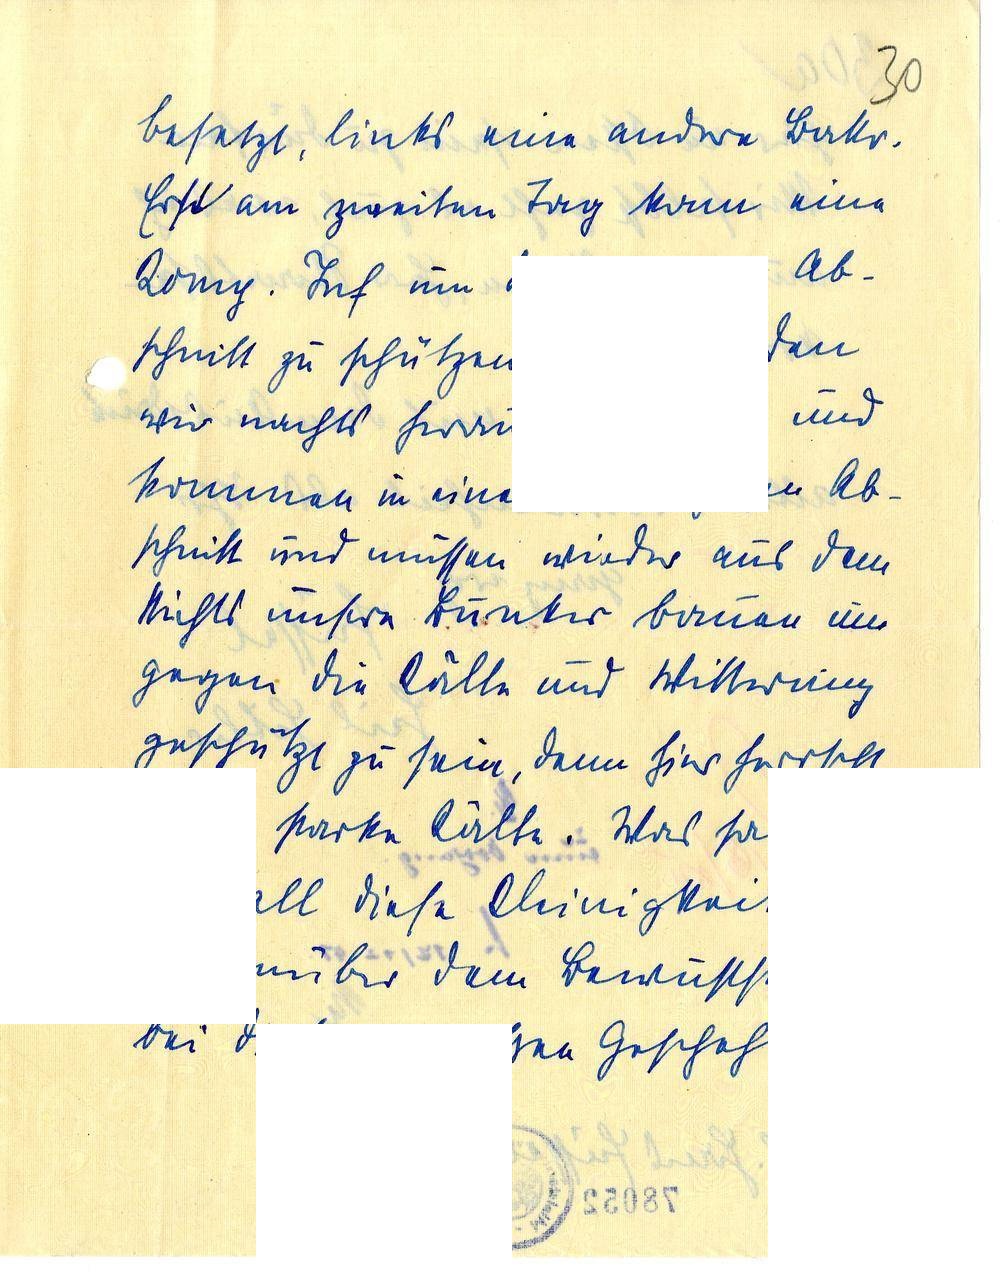 30
besetzt, links eine andere Battr.
Erst am zweiten Tag kam eine
Komp. Inf um Ab-
schnitt zu schützen den
wir nachts herau und
kommen in eine en Ab-
schnitt und müssen wieder aus dem
Nichts unsere Bunker bauen um
gegen die Kälte und Witterung
geschützt zu sein, denn hier herrscht
starke Kälte. Was
all diese Kleinigkei
nüber dem Bewusst
bei Gescheh
78052